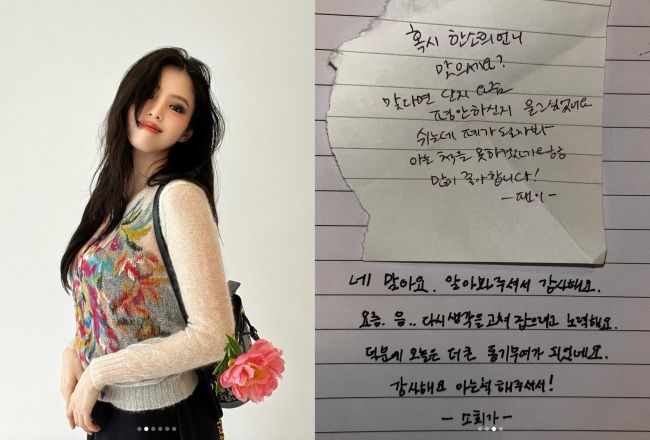 혹시 한소희언니
맞으세요?
맞다면 단지 요즘
평안하신지 묻고싶었어요
쉬는데 폐가 될까봐
아는 척을 못하겠기에요ㅎㅎ
많이 좋아합니다!
-팬이-
네 맞아요. 알아봐주셔서 감사해요.
요즘. 음.. 다시 생각을 고쳐 잡으려고 노력해요.
덕분에 오늘은 더 큰 동기부여가 되었네요.
감사해요 아는척 해주셔서!
- 소희가 -